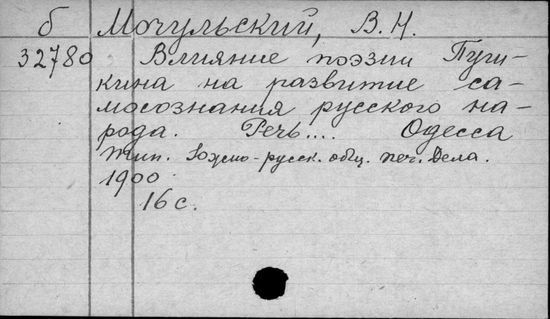 б Мочульский, В. Н.
32780 Влияние поэзии Пуш-
кина на развитие са-
мосознания русского на-
рода. Речь.... Одесса
тип. Южно-русск. общ. печ. Дела.
1900
16 с.